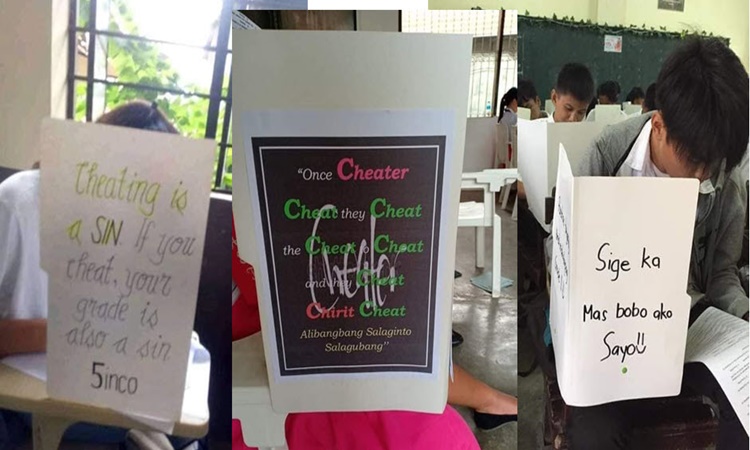 Cheating is
a SIN. If you
cheat, your
grade is
also a sin
5inco
“Once Cheater
Cheat they Cheat
the Cheat to Cheat
and they Cheat
Chirit Cheat
Cheater
Alibangbang Salaginto
Salagubang”
Sige ka
Mas bobo ako
Sayo!!